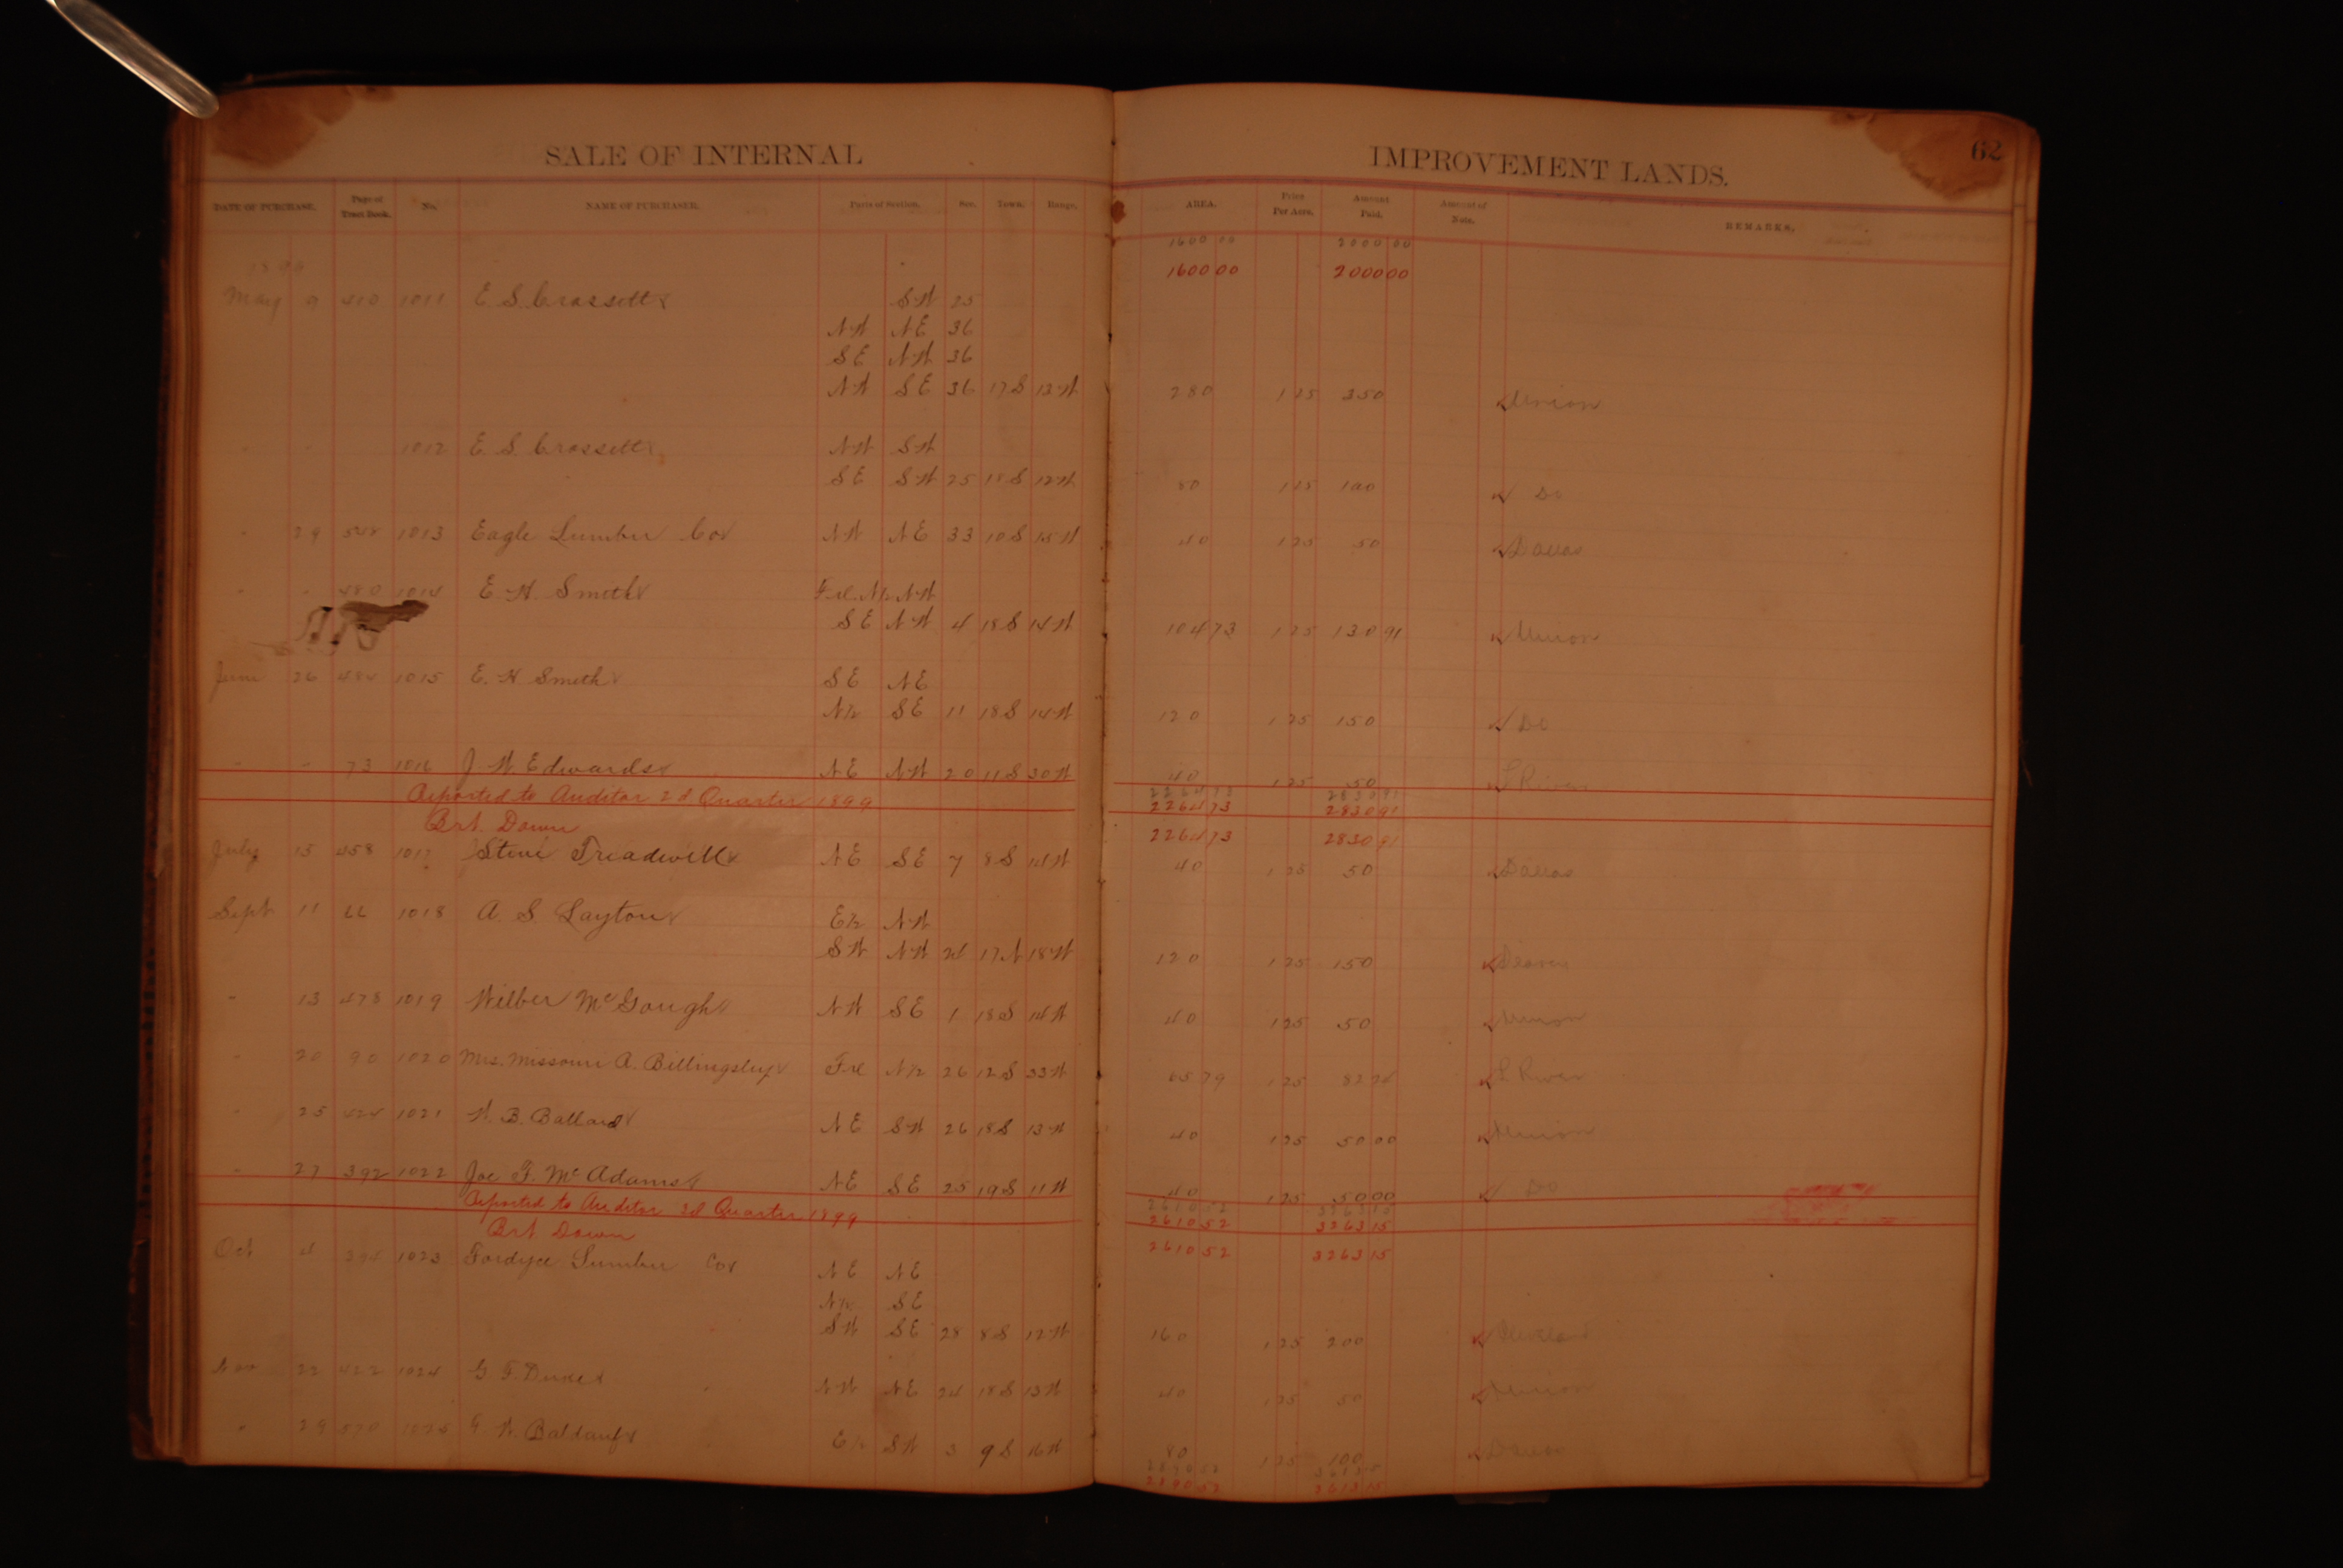 SALE OF INTERNAL IMPROVEMENT LANDS. 62
DATE OF PURCHASE. Page of Tract Book. No. NAME OF PURCHASER. Parts of Section. Sec. Town. Range. AREA. Price Per Acre. Amount Paid. Amount of Note. REMARKS.
1600 00 2000 00
1899 1600 00 2000 00
May 9 410 1011 E. S. Crossett SW 25
NW NE 36
SE NW 36
NW SE 36 17S 13W 280 1 25 350 Union
" " 1012 E. S. Crossett NW SW
SE SW 25 18S 12W 80 1 25 100 Do
" 29 548 1013 Eagle Lumber Co NW NE 33 10S 15W 40 1 25 50 Dallas
" " 480 1014 E. W. Smith Frl. N½ NW
SE NW 4 18S 14W 104 73 1 25 130 91 Union
June 26 484 1015 E. W Smith SE NE
N½ SE 11 18S 14W 120 1 25 150 Do
" " 73 1016 J. W. Edwards NE NW 20 11S 30W 40 1 25 50 L River
2264 73 2830 91
Reported to Auditor 2d Quarter 1899 2264 73 2830 91
Brt. Down 2264 73 2830 91
July 15 458 1017 Steve Treadwill NE SE 7 8S 14W 40 1 25 50 Dallas
Sept 11 LL 1018 A. S. Layton E½ NW
SW NW 24 17N 18W 120 1 25 150 Searcy
" 13 478 1019 Wilber McGough NW SE 1 18S 14W 40 1 25 50 Union
" 20 90 1020 Mrs. Missouri A. Billingsley Frl N½ 26 12S 33W 65 79 1 25 82 24 L River
" 25 424 1021 W. B. Ballard NE SW 26 18S 13W 40 1 25 50 00 Union
" 27 392 1022 Joe F. McAdams NE SE 25 19S 11W 40 1 25 50 00 Do
2610 52 3263 15
Reported to Auditor 3d Quarter 1899 2610 52 3263 15
Brt Down 2610 52 3263 15
Oct 4 294 1023 Fordyce Lumber Co NE NE
N½ SE
SW SE 28 8S 12W 160 1 25 200 Cleveland
Nov 22 422 1024 G. F. Duke NW NE 24 18S 13W 40 1 25 50 Union
" 29 570 1025 G. W. Baldauf E½ SW 3 9S 16W 80 1 25 100 Dallas
2890 52 3613 15
2890 52 3613 15